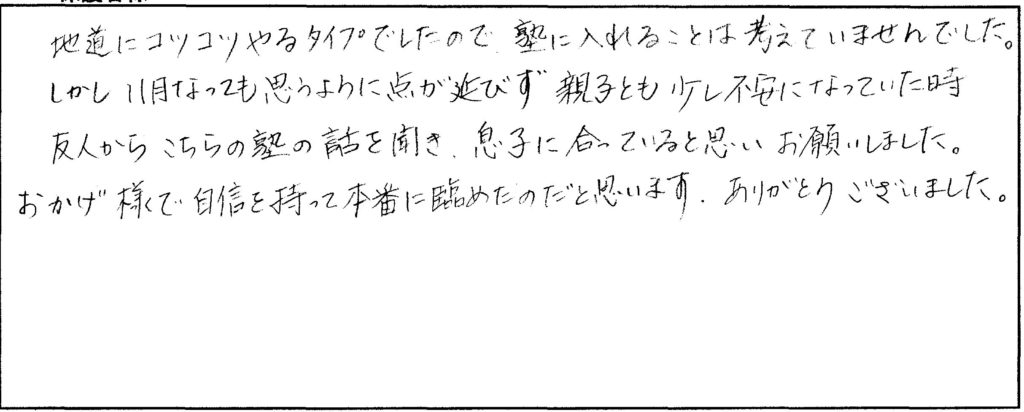 地道にコツコツやるタイプでしたので、塾に入れることは考えていませんでした。
しかし11月なっても思うように点が延びず 親子とも少し不安になっていた時
友人からこちらの塾の話を聞き、息子に合っていると思いお願いしました。
おかげ様で自信を持って本番に臨めたのだと思います。ありがとうございました。